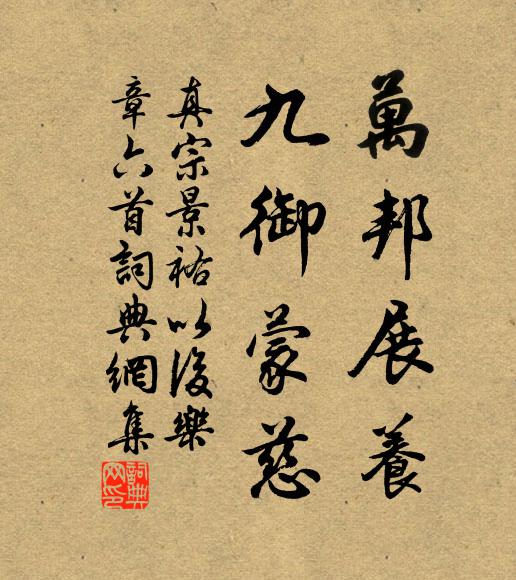 萬邦展養
九御蒙慈
真宗景祐以後樂
章六首詞典網集
詞典网印